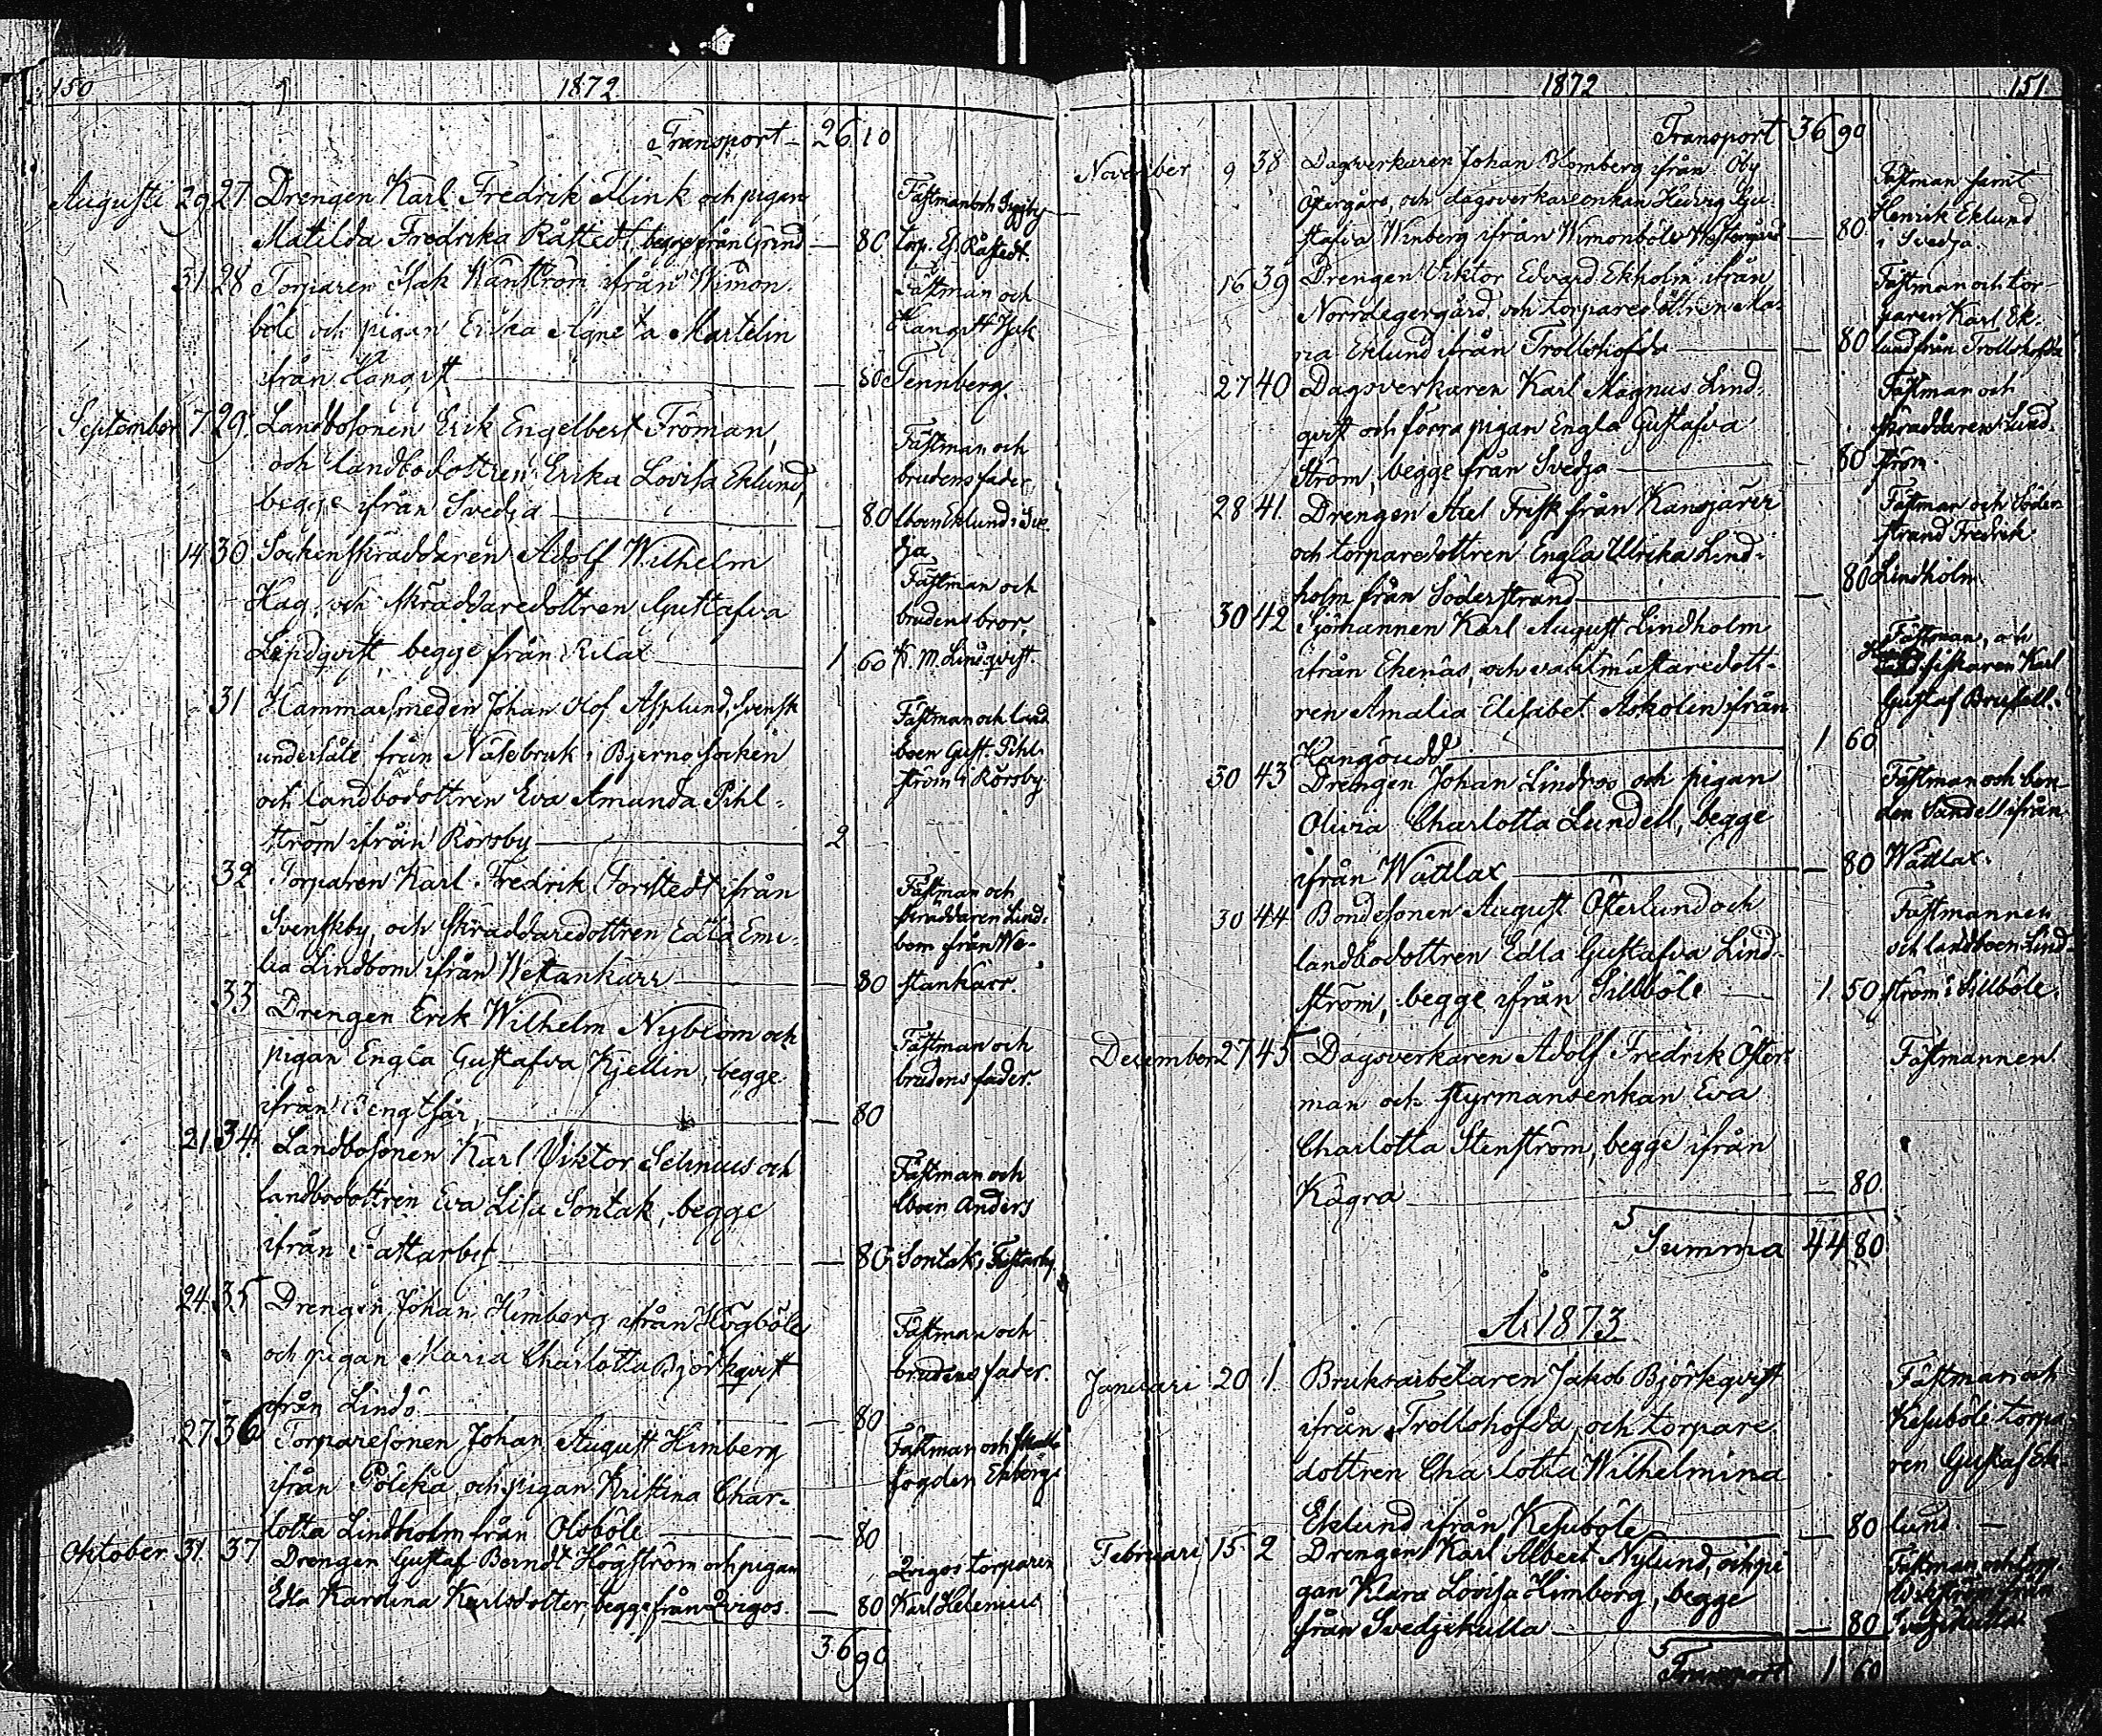 150 1872
Transport 26 10
Augusti 29 27 Drengen Karl Fredrik Flink och pigan Fästman och
Matilda Fredrika Råstedt, begge från Grind — 80 torp. Råstedt
31 28 Torparen Isak Wänström ifrån Wimon- Fästman och
böle och pigan Erika Agneta Martelin
ifrån Hangist — 80 Tennberg.
September 7 29. Landbosonen Erik Engelbert Fröman, Fästman och
och landbodottren Erika Lovisa Eklund, brudens fader
begge ifrån Svedja — 80 lboen Eklund i Sve-
dja
14 30 Sockenskräddaren Adolf Wilhelm Fästman och
Hag, och skräddaredottren Gustafva brudens bror,
Lindqvist, begge från Rilax 1 60 K. M. Lindqvist.
31 Hammarsmeden Johan Olof Asplund, Svensk Fästman och land
undersåte från Näsebruk i Bjerno socken boen Gust. Pihl-
och landbodottren Eva Amanda Pihl- ström i Rörsby.
ström ifrån Rörsby — 2
32 Torparen Karl Fredrik Forstedt ifrån Fästman och
Svenskby, och skräddaredottren Edla Emi- skräddaren Lind-
lia Lindbom ifrån Westankärr — 80 bom från We-
stankärr.
33 Drengen Erik Wilhelm Nyblom och Fästman och
pigan Engla Gustafva Kjellin, begge brudens fader.
ifrån Bengtsår — 80
21. 34. Landbosonen Karl Viktor Selinius och Fästman och
landbodottren Eva Lisa Sontak, begge lboen Anders
ifrån — 80 Sontak i
24. 35 Drengen Johan Himberg ifrån Högböle Fästman och
och pigan Maria Charlotta Björkqvist brudens fader.
från Lindö — 80
27 36 Torparesonen Johan August Himberg Fästman och
ifrån och pigan Kristina Char- fogden Ekberg.
lotta Lindholm från Olsböle — 80
Oktober 31. 37 Drengen Gustaf Berndt Högström och pigan torparen
Edla Karolina Karlsdotter, begge från — 80 Karl Helenius
36 90
1872 151.
Transport 36 90
November 9 38 Dagsverkaren Johan Blomberg ifrån Öby Fästman samt
Östergård, och dagsverkareenkan Hedvig Gu- Henrik Eklund
stafva Winberg ifrån Wimonböle Westergård — 80 i Svedja.
16 39 Drengen Viktor Edvard Ekholm ifrån Fästman och tor-
Norrdegergård och torparedottren Ma- paren Karl Ek-
ria Eklund ifrån Trollshofda — 80 lund från Trollshofda
27 40 Dagsverkaren Karl Magnus Lind- Fästman och
qvist och förra pigan Engla Gustafva skräddaren Lind-
Ström, begge från Svedja — 80 ström.
28 41. Drengen Axel Frisk från Kansjärvi Fästman och Söder-
och torparedottren Engla Ulrika Lind- strand Fredrik
holm från Söderstrand — 80 Lindholm.
30 42 Sjömannen Karl August Lindholm Fästman, och
ifrån Ekenäs, och vaktmästaredott- fiskaren Karl
ren Amalia Elisabet Askolin ifrån Gustaf
Hangöudd — 1 60
30 43 Drengen Johan Lindroo och pigan Fästman och bon-
Olivia Charlotta Lundell, begge den Sandell ifrån
ifrån Wättlax — 80 Wättlax.
30 44 Bondesonen August Österlund och Fästmannen
landbodottren Edla Gustafva Lind- och landboen Lind-
ström, begge ifrån Sillböle — 1. 50 ström i Sillböle.
December 27 45 Dagsverkaren Adolf Fredrik Öster- Fästmannen
man och styrmansenkan Eva
Charlotta Stenström, begge ifrån
Kågra — 80
Summa 44 80
År 1873
Januari 20 1. Bruksarbetaren Jakob Björkqvist Fästman och
ifrån Trollshofda, och torpare- Kesuböle torpa-
dottren Charlotta Wilhelmina ren Gustaf Ek-
Eklund ifrån Kesuböle — 80 lund. —
Februari 15 2 Drengen Karl Albert Nylund, och pi Fästman och torp.
gan Klara Lovisa Himberg, begge
från Svedjekulla — 80 Svedjekulla
Transport 1 60